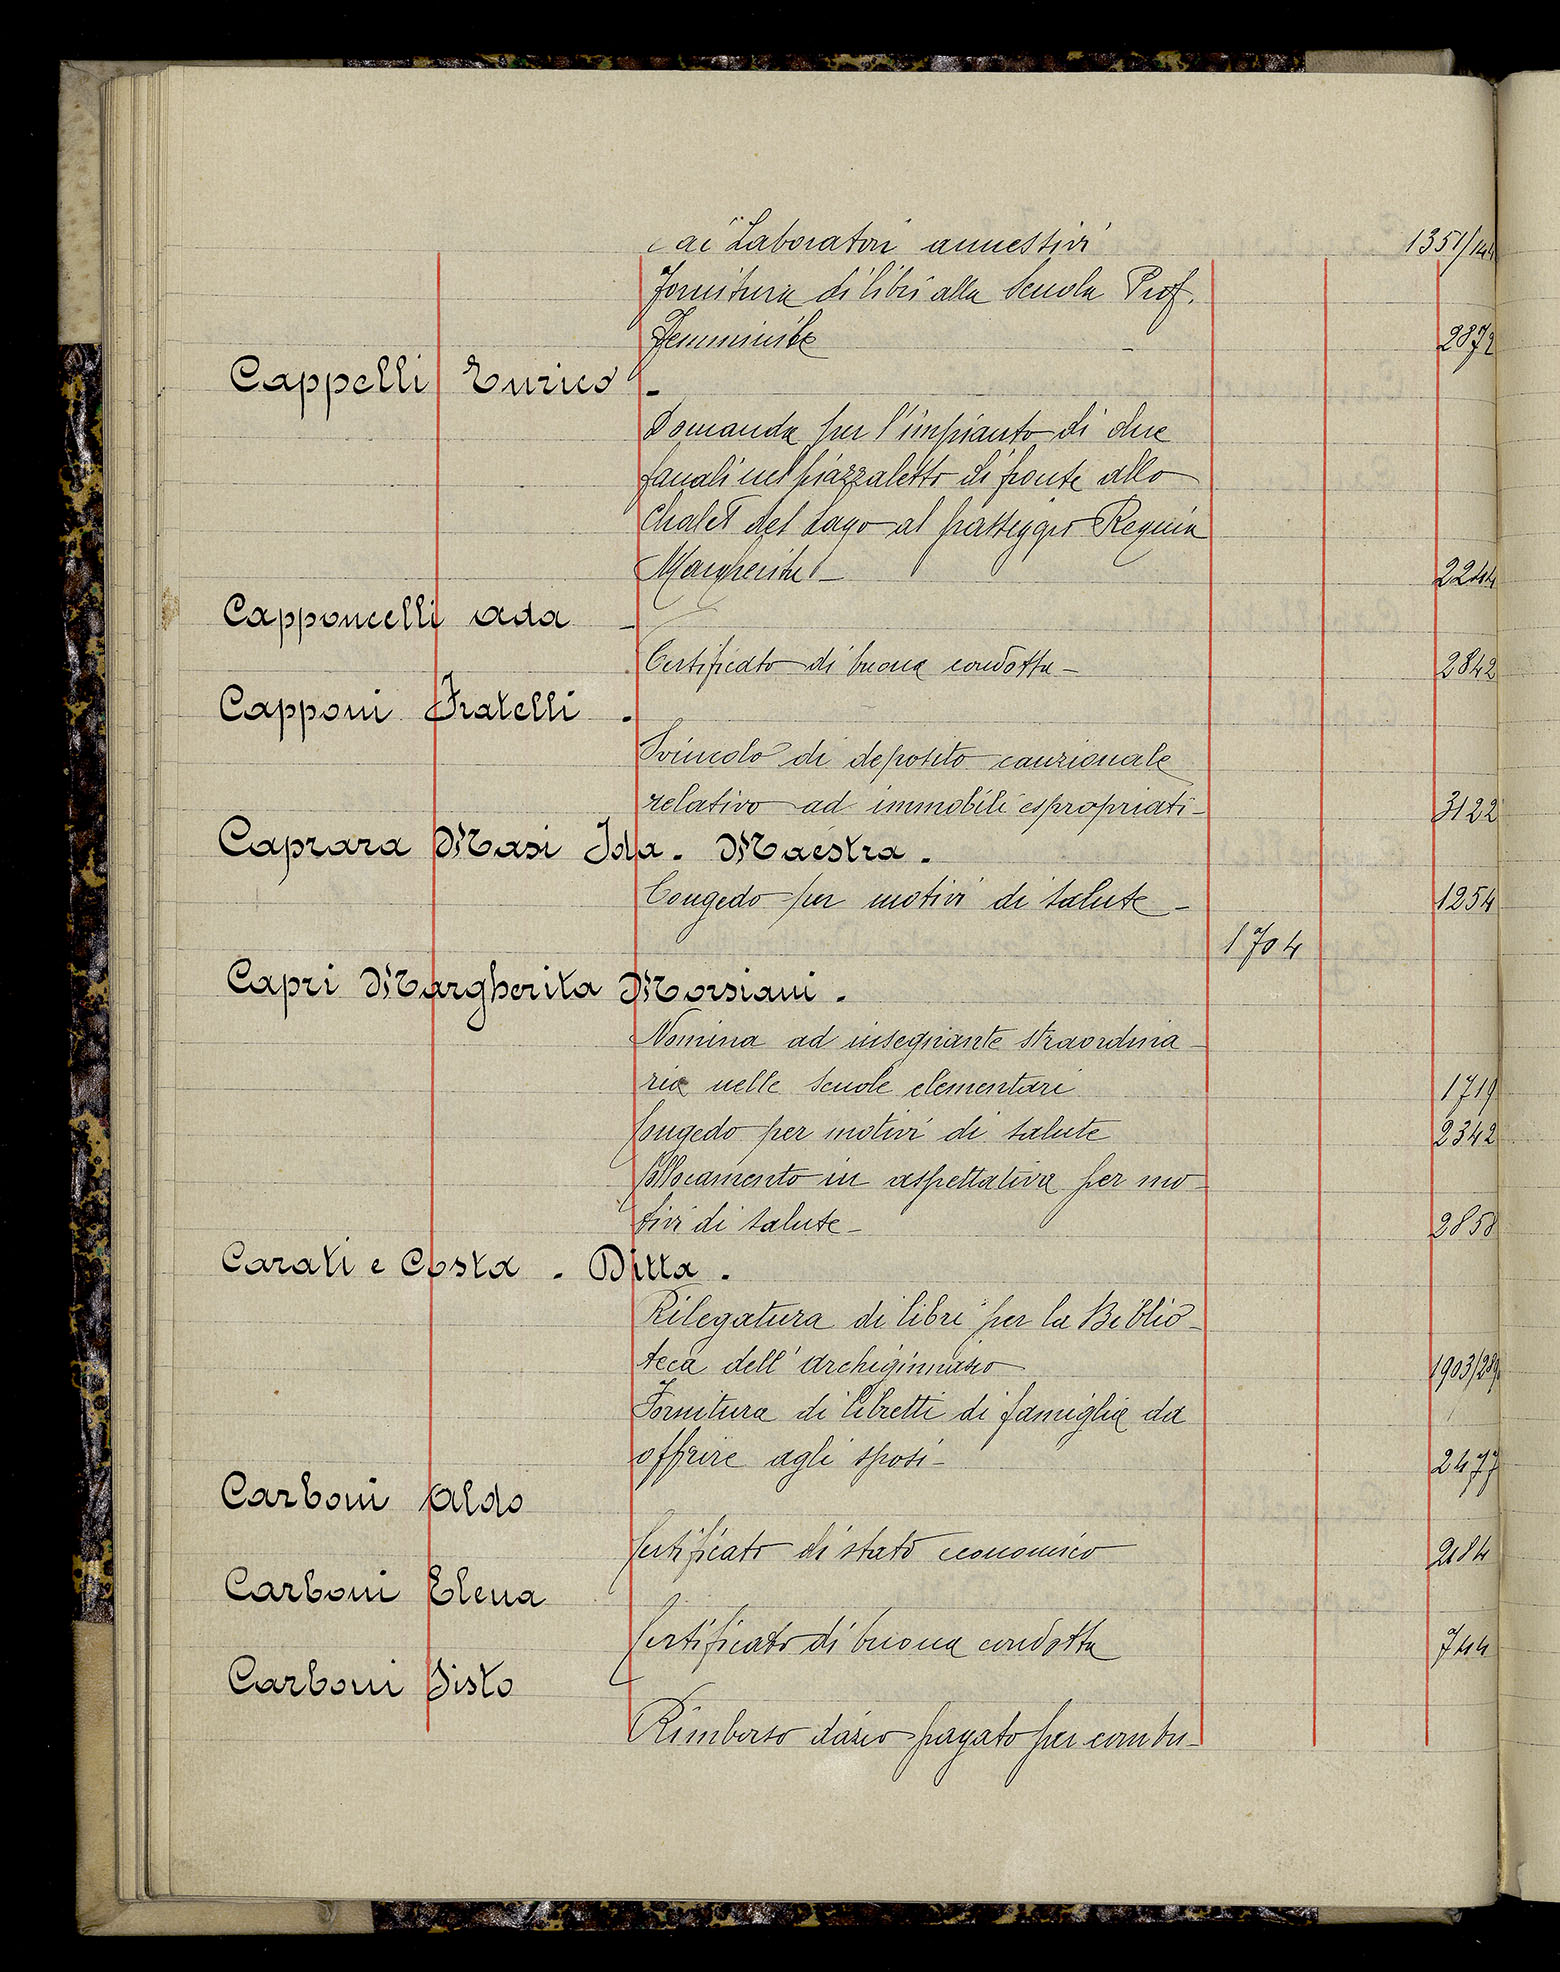 e ai Laboratori annessivi 1351/144
Fornitura di libri alla Scuola Prof.
Femminile 2872
Cappelli Enrico -
Domanda per l'impianto di due
fanali nel piazzaletto di fronte allo
Chalet del Lago al passeggio Regina
Margherita - 2244
Capponcelli Ada -
Certificato di buona condotta - 2842
Capponi Fratelli .
Svincolo di deposito cauzionale
relativo ad immobili espropriati - 3122
Caprara Masi Ida . Maestra .
Congedo per motivi di salute - 1254
1704
Capri Margherita Morsiani .
Nomina ad insegnante straordina-
ria nelle Scuole elementari 1719
Congedo per motivi di salute 2342
Collocamento in aspettativa per mo-
tivi di salute - 2858
Carati e Costa . Ditta .
Rilegatura di libri per la Biblio-
teca dell'archiginnasio 1903/289
Fornitura di libretti di famiglia da
offrire agli sposi - 2477
Carboni Aldo
Certificato di stato economico 2184
Carboni Elena
Certificato di buona condotta 744
Carboni Sisto
Rimborso dazio pagato per combu-